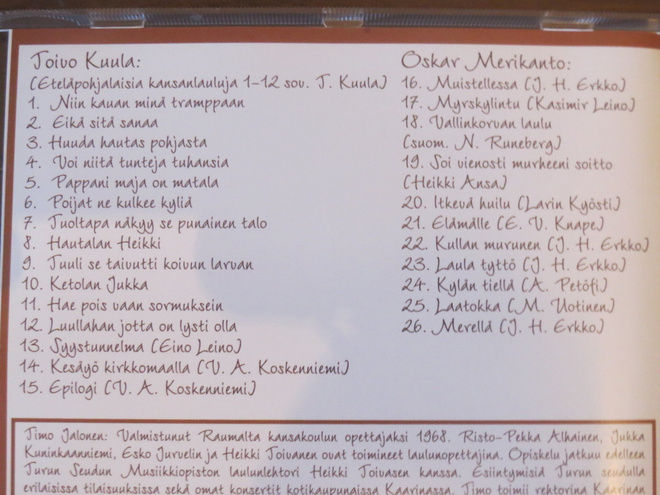 Toivo Kuula:
(Eteläpohjalaisia kansanlauluja 1-12 sov. T. Kuula)
1. Niin kauan minä tramppaan
2. Eikä sitä sanaa
3. Huuda hautas pohjasta
4. Voi niitä tunteja tuhansia
5. Pappani maja on matala
6. Poijat ne kulkee kyliä
7. Tuoltapa näkyy se punainen talo
8. Hautalan Heikki
9. Tuuli se taivutti koivun larvan
10. Ketolan Jukka
11. Hae pois vaan sormuksein
12. Luullahan jotta on lysti olla
13. Syystunnelma (Eino Leino)
14. Kesäyö kirkkomaalla (V. A. Koskenniemi)
15. Epilogi (V. A. Koskenniemi)
Oskar Merikanto:
16. Muistellessa (J. H. Erkko)
17. Myrskylintu (Kasimir Leino)
18. Vallinkorvan laulu
(suom. N. Runeberg)
19. Soi vienosti murheeni soitto
(Heikki Ansa)
20. Itkevä huilu (Larin Kyösti)
21. Elämälle (E. V. Knape)
22. Kullan murunen (J. H. Erkko)
23. Laula tyttö (J. H. Erkko)
24. Kylän tiellä (A. Petöfi)
25. Laatokka (M. Uotinen)
26. Merellä (J. H. Erkko)
Timo Jalonen: Valmistunut Raumalta kansakoulun opettajaksi 1968. Risto-Pekka Alhainen, Jukka
Kuninkaanniemi, Esko Jurvelin ja Heikki Toivanen ovat toimineet laulunopettajina. Opiskelu jatkuu edelleen
Turun Seudun Musiikkiopiston laulunlehtori Heikki Toivasen kanssa. Esiintymisiä Turun seudulla
erilaisissa tilaisuuksissa sekä omat konsertit kotikaupunaissa Kaarinassa. Timo toimii rehtorina Kaarinan